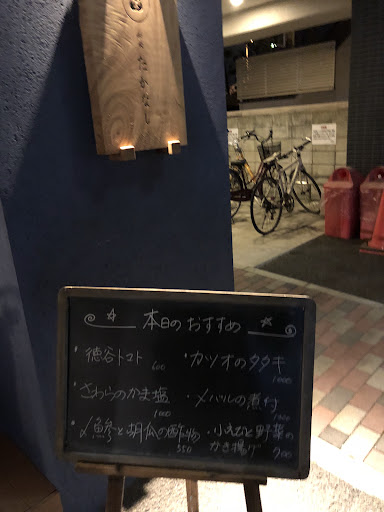 本日のおすすめ
・徳谷トマト 600
・カツオのタタキ 1000
・さわらのかま塩 1000
・メバルの煮付 1000
・〆鯵と胡瓜の酢物 550
・小えびと野菜の
かき揚げ 900